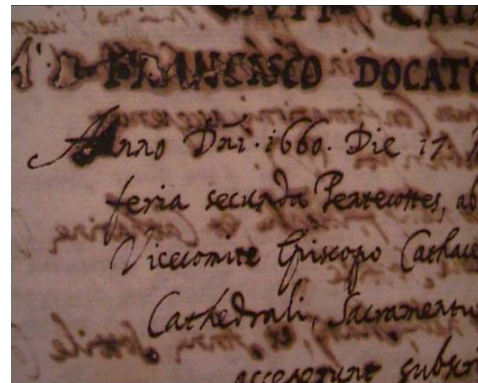 FRANCASCO DOCATO
Anno Dñi. 1660. Die 17.
feria secunda Pentecostes, ab
Vicecomite Episcopo Cathac
Cathedrali, Sacramentu
acceperunt subscri